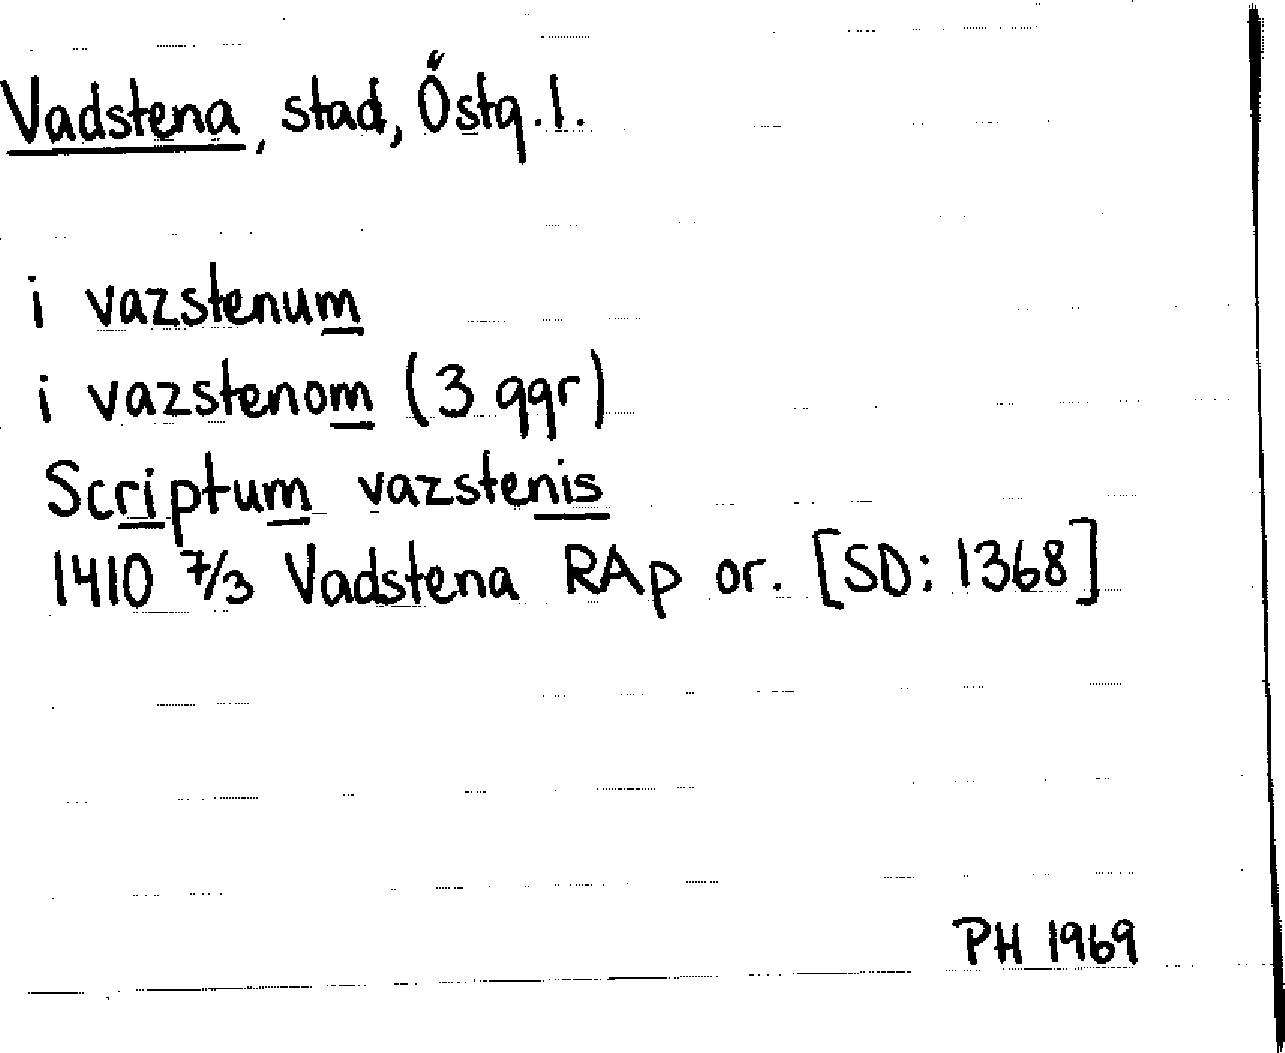 Vadstena, stad, Östg.l.
i vazstenum
i vazstenom (3 ggr)
Scriptum vazstenis
1410 7/3 Vadstena RAp or. [SD: 1368]
PH 1969